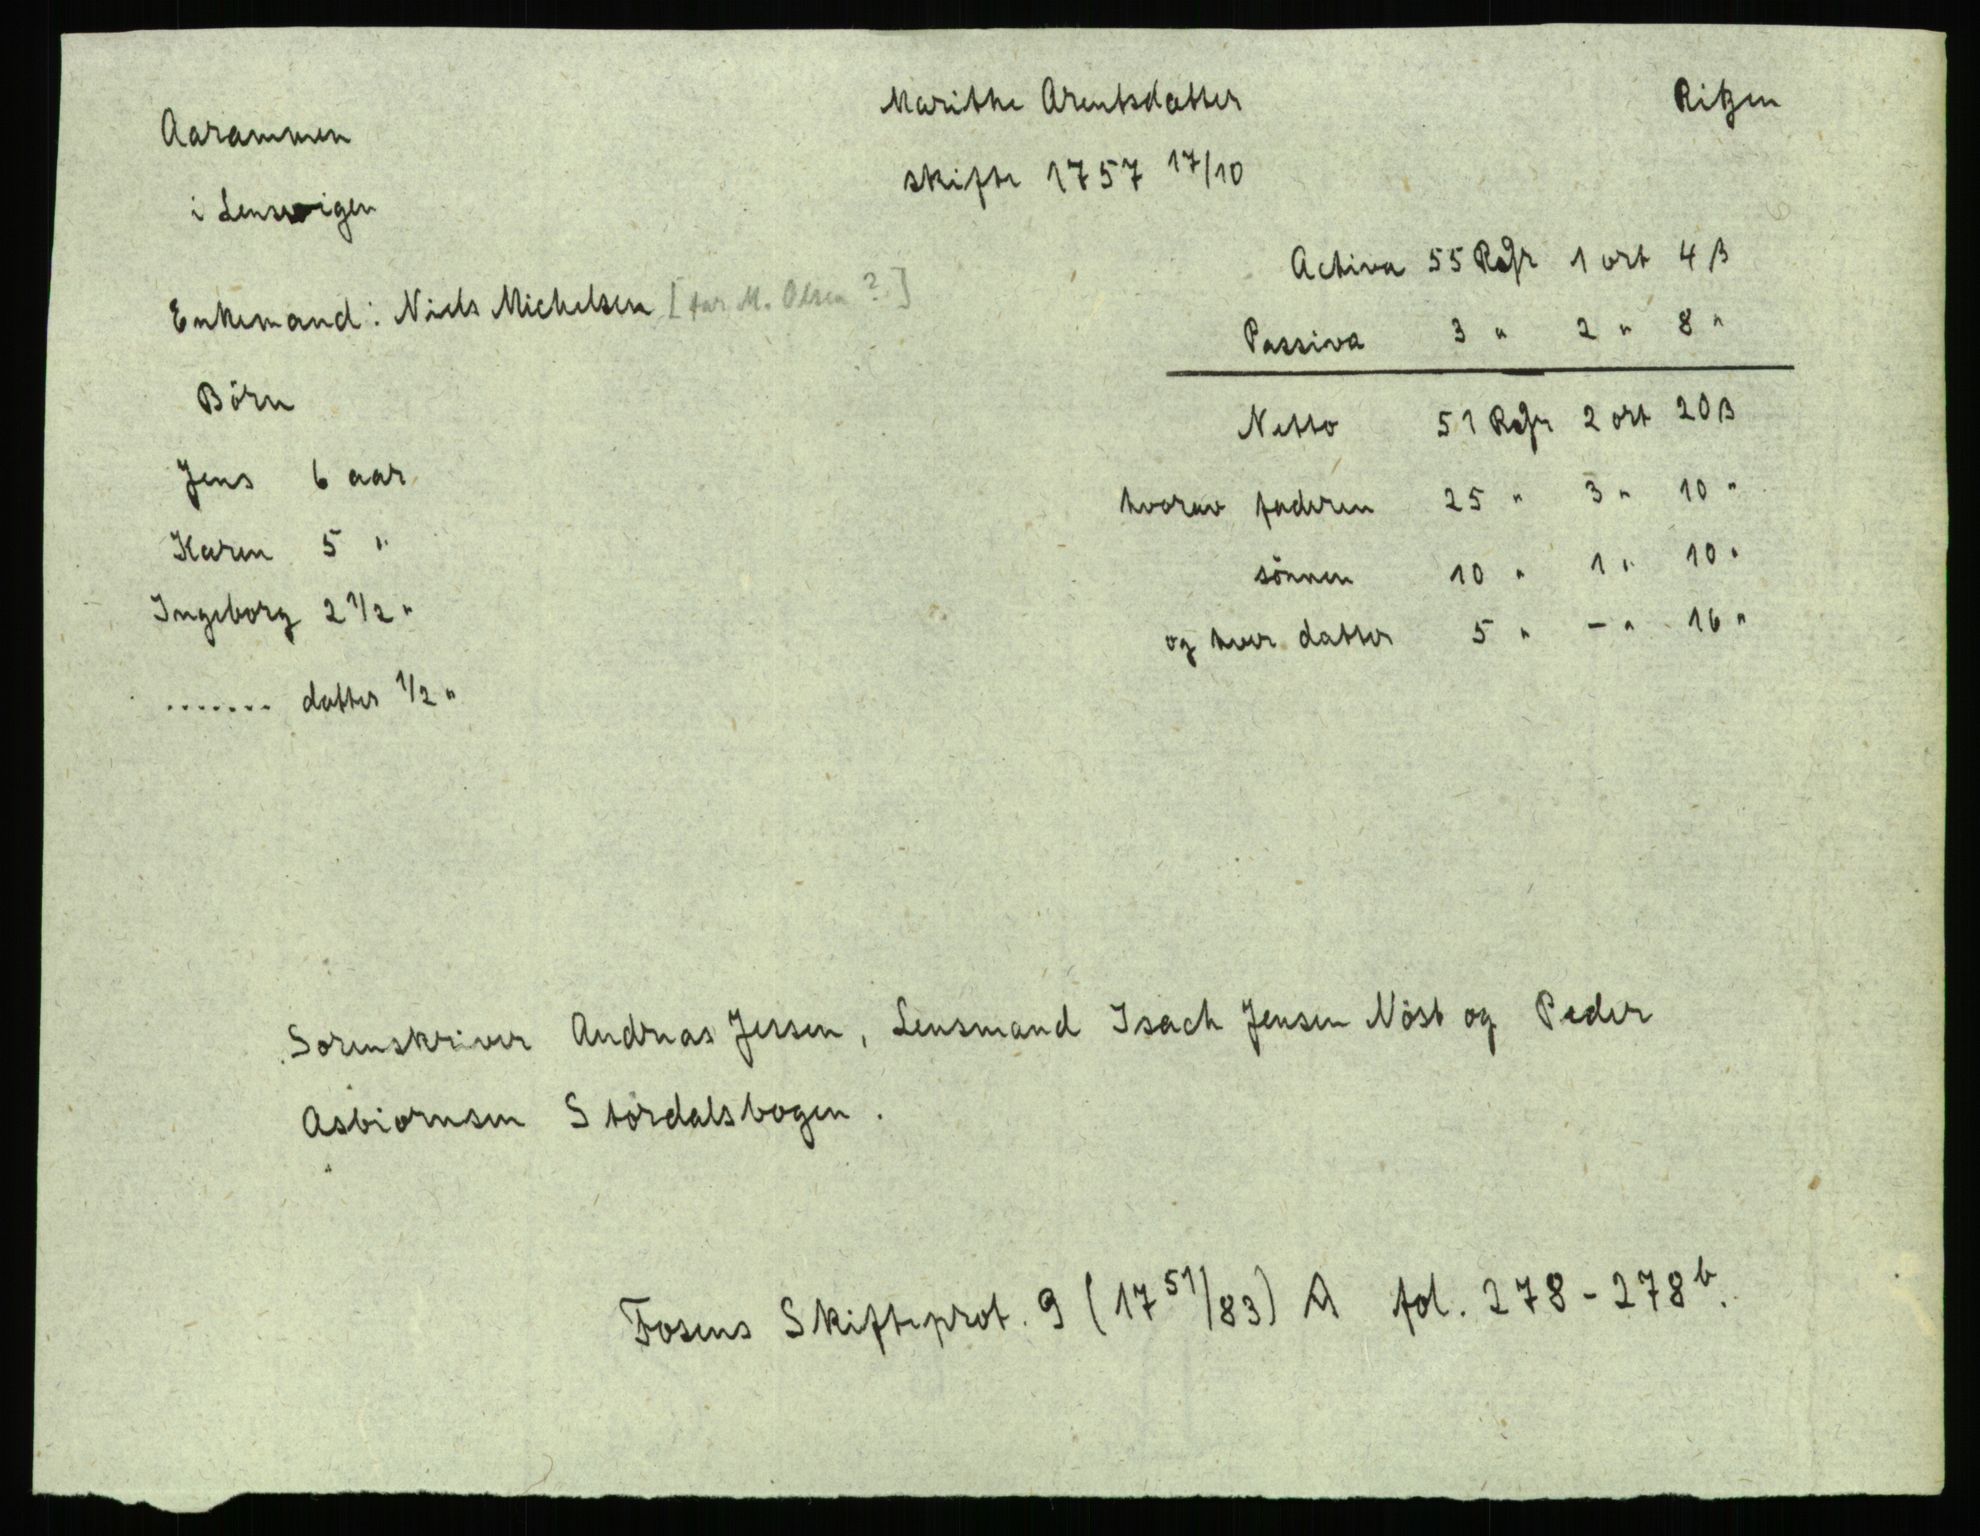 Marithe Arentsdatter
Ritzen
Aarammen
skifte 1757 17/10
i Lensvigen
Activa 55 Rdr 1 ort 4 β
Enkemand: Niels Michelsen [far M. Olsen?]
Passiva 3 " 2 " 8 "
Börn
Netto 51 Rdr 2 ort 20 β
Jens 6 aar
hvorav faderen 25 " 3 " 10 "
Karen 5 "
sönnen 10 " 1 " 10 "
Ingeborg 2 1/2 "
og hver datter 5 " – " 16 "
....... datter 1/2 "
Sorenskriver Andreas Jessen, Lensmand Isach Jensen Nöst og Peder
Asbiornsen Stördalsbogen.
Fosens Skifteprot. 9 (17 51/83) A fol. 278-278b.